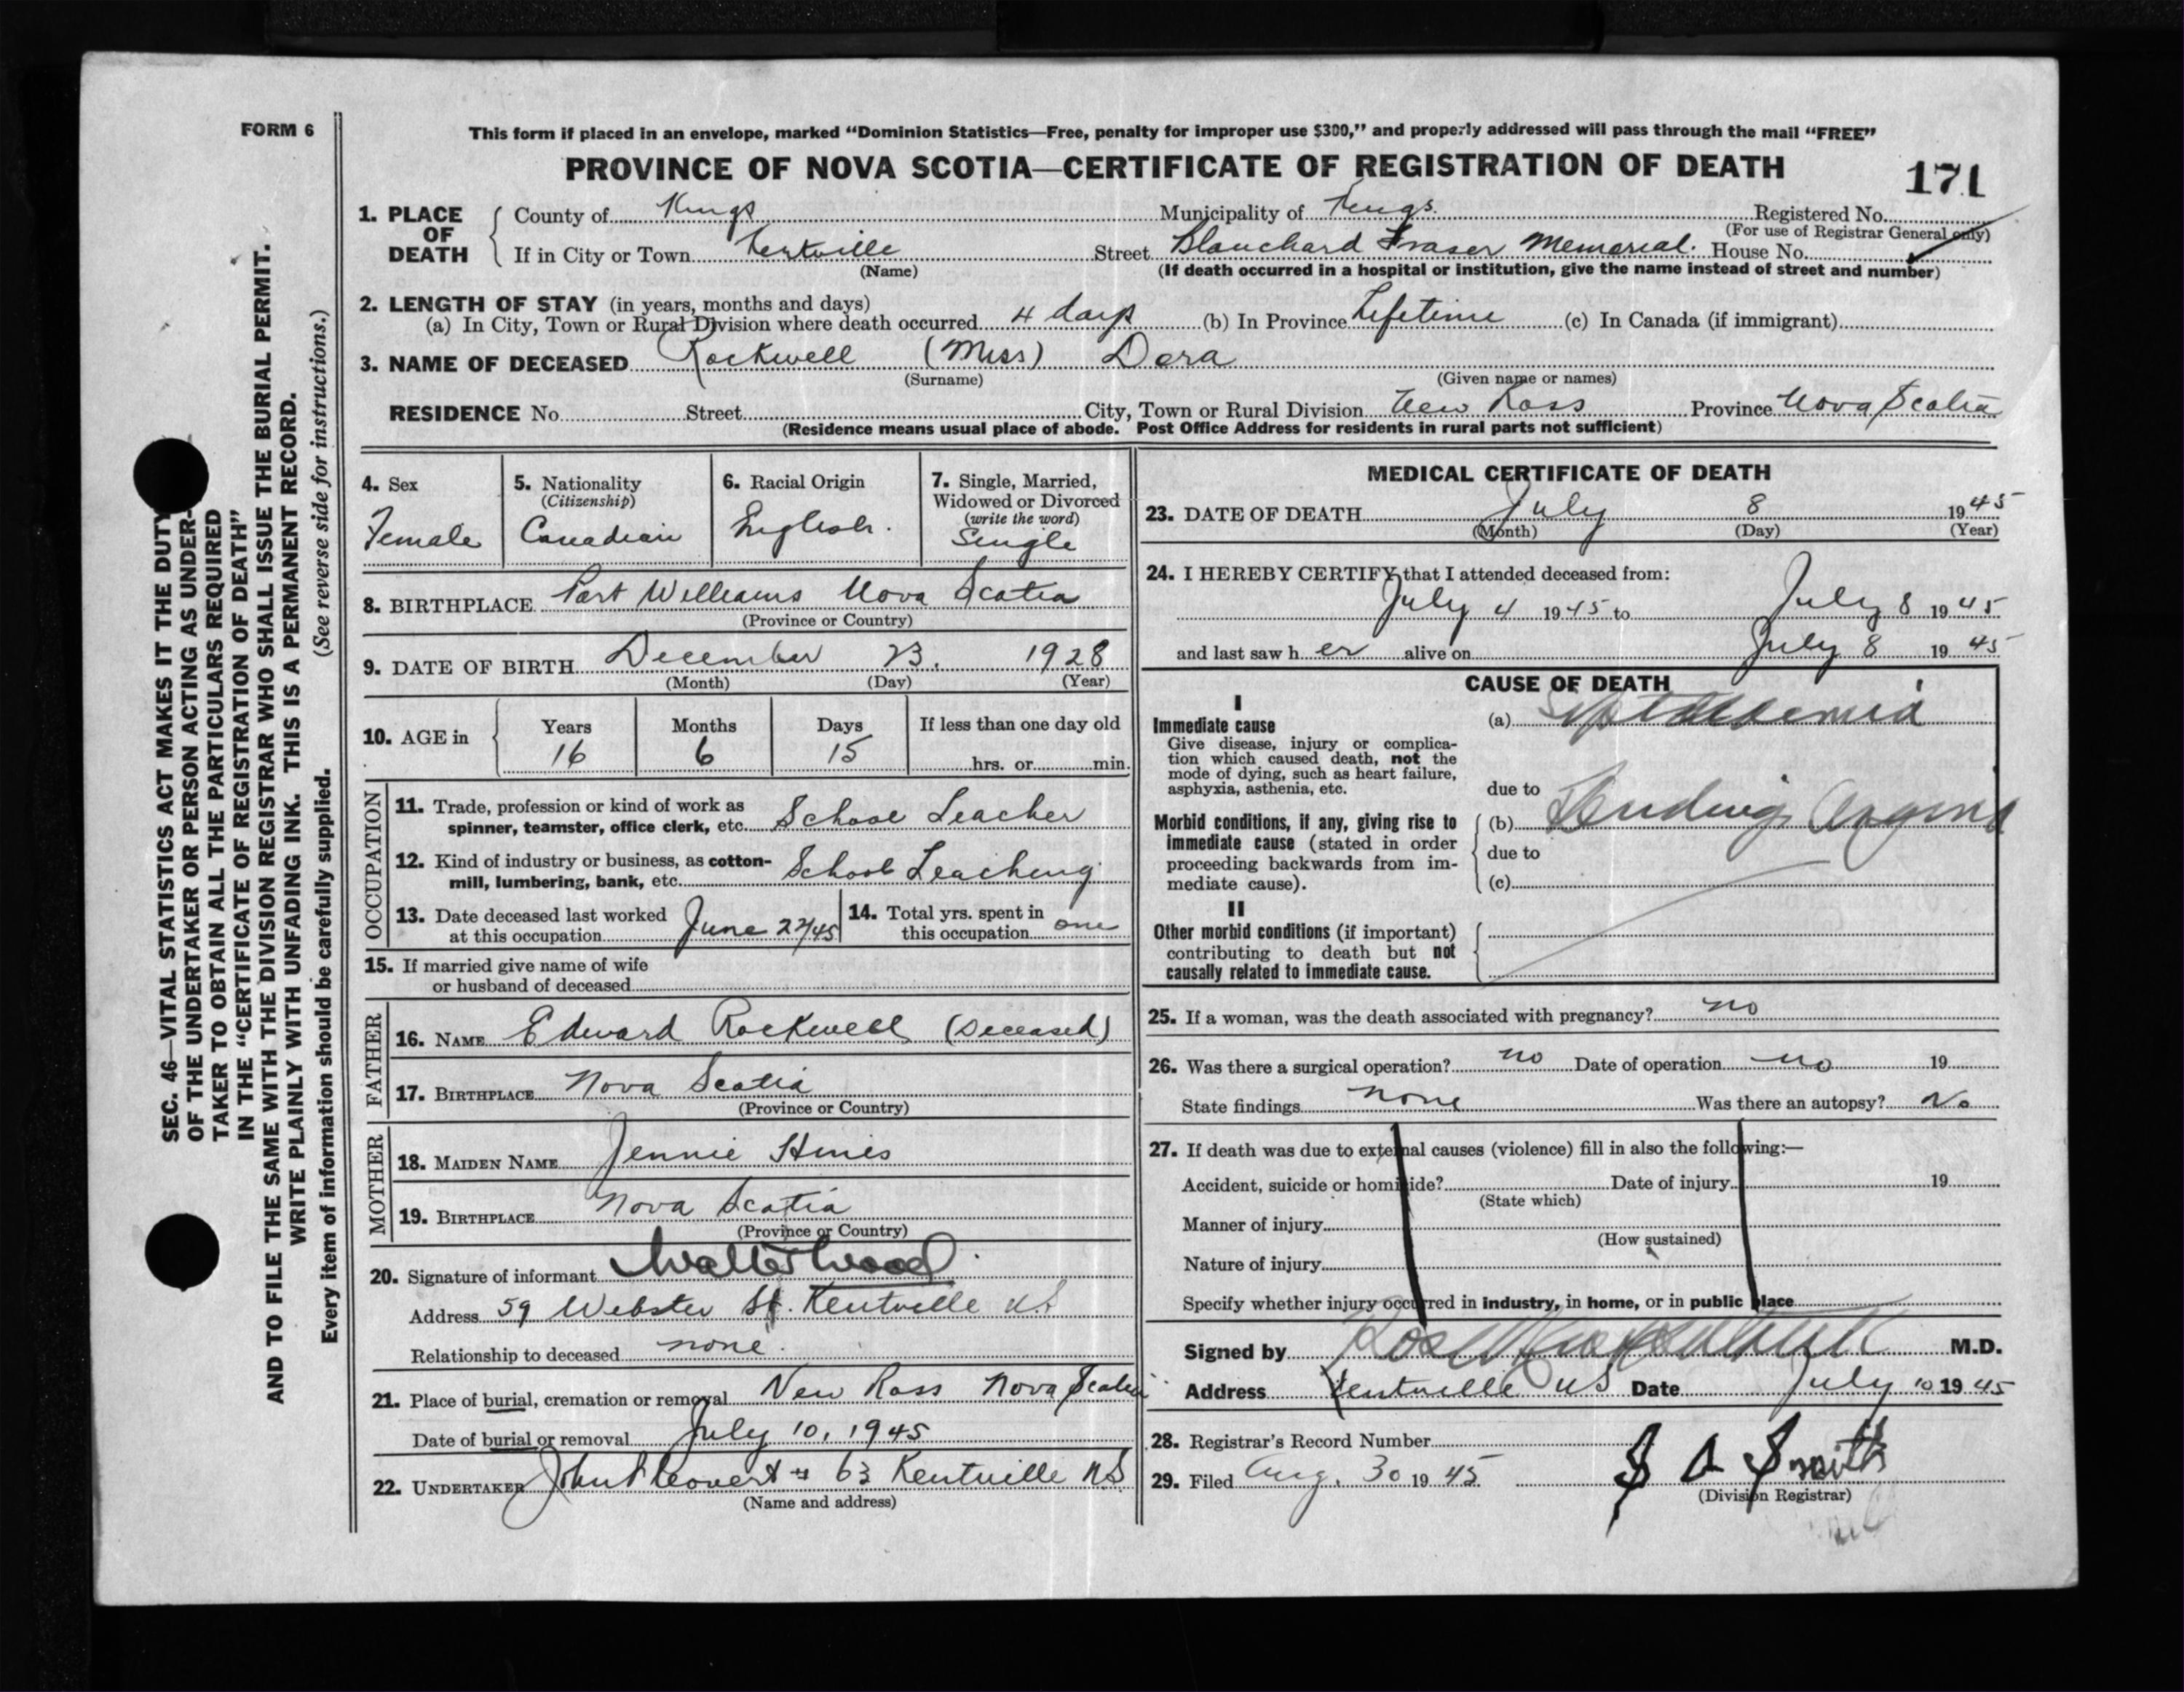 FORM 6
This form if placed in an envelope, marked “Dominion Statistics—Free, penalty for improper use $300,” and properly addressed will pass through the mail “FREE”
PROVINCE OF NOVA SCOTIA—CERTIFICATE OF REGISTRATION OF DEATH
171
1. PLACE OF DEATH
County of Kings Municipality of Kings Registered No.
(For use of Registrar General only)
If in City or Town Kentville Street Blanchard Fraser Memorial. House No.
(Name) (If death occurred in a hospital or institution, give the name instead of street and number)
2. LENGTH OF STAY (in years, months and days)
(a) In City, Town or Rural Division where death occurred 4 days (b) In Province Lifetime (c) In Canada (if immigrant)
3. NAME OF DECEASED Rockwell (Miss) Dora
(Surname) (Given name or names)
RESIDENCE No. Street City, Town or Rural Division New Ross Province Nova Scotia
(Residence means usual place of abode. Post Office Address for residents in rural parts not sufficient)
SEC. 46—VITAL STATISTICS ACT MAKES IT THE DUTY
OF THE UNDERTAKER OR PERSON ACTING AS UNDER-
TAKER TO OBTAIN ALL THE PARTICULARS REQUIRED
IN THE “CERTIFICATE OF REGISTRATION OF DEATH”
AND TO FILE THE SAME WITH THE DIVISION REGISTRAR WHO SHALL ISSUE THE BURIAL PERMIT.
WRITE PLAINLY WITH UNFADING INK. THIS IS A PERMANENT RECORD.
Every item of information should be carefully supplied. (See reverse side for instructions.)
4. Sex
Female
5. Nationality
(Citizenship)
Canadian
6. Racial Origin
English.
7. Single, Married,
Widowed or Divorced
(write the word)
Single
8. BIRTHPLACE Port Williams Nova Scotia
(Province or Country)
9. DATE OF BIRTH December 23. 1928
(Month) (Day) (Year)
10. AGE in
Years Months Days If less than one day old
16 6 15 hrs. or min.
OCCUPATION
11. Trade, profession or kind of work as
spinner, teamster, office clerk, etc. School Teacher
12. Kind of industry or business, as cotton-
mill, lumbering, bank, etc. School Teaching
13. Date deceased last worked
at this occupation June 27/45
14. Total yrs. spent in
this occupation one
15. If married give name of wife
or husband of deceased
FATHER
16. NAME Edward Rockwell (Deceased)
17. BIRTHPLACE Nova Scotia
(Province or Country)
MOTHER
18. MAIDEN NAME Jennie
19. BIRTHPLACE Nova Scotia
(Province or Country)
20. Signature of informant Walter Wood
Address 59 Webster St. Kentville NS
Relationship to deceased none.
21. Place of burial, cremation or removal New Ross Nova Scotia
Date of burial or removal July 10, 1945
22. UNDERTAKER 63 Kentville NS
(Name and address)
MEDICAL CERTIFICATE OF DEATH
23. DATE OF DEATH July 8 1945
(Month) (Day) (Year)
24. I HEREBY CERTIFY that I attended deceased from:
July 4 1945 to July 8 1945
and last saw her alive on July 8 1945
CAUSE OF DEATH
I
Immediate cause
Give disease, injury or complica-
tion which caused death, not the
mode of dying, such as heart failure,
asphyxia, asthenia, etc.
(a) Septicaemia
due to
Morbid conditions, if any, giving rise to
immediate cause (stated in order
proceeding backwards from im-
mediate cause).
(b) Ludwig's Angina
due to
(c)
II
Other morbid conditions (if important)
contributing to death but not
causally related to immediate cause.
25. If a woman, was the death associated with pregnancy? no
26. Was there a surgical operation? no Date of operation no 19
State findings none Was there an autopsy? No
27. If death was due to external causes (violence) fill in also the following:—
Accident, suicide or homicide? Date of injury 19
(State which)
Manner of injury
(How sustained)
Nature of injury
Specify whether injury occurred in industry, in home, or in public place
Signed by M.D.
Address Kentville NS Date July 10 1945
28. Registrar's Record Number
29. Filed Aug. 30 1945 Smith
(Division Registrar)